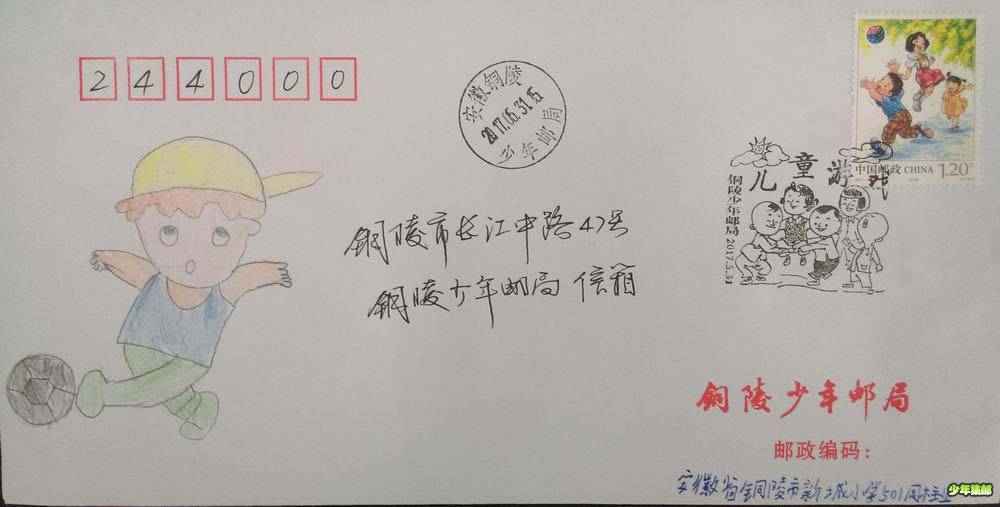 244000
安徽铜陵
2017.05.31.15
少年邮局
中国邮政 CHINA 1.20元
儿童游戏
铜陵少年邮局 2017.5.31
铜陵市长江中路47号
铜陵少年邮局 信箱
铜陵少年邮局
邮政编码：
安徽省铜陵市新城小学501周
少年集邮